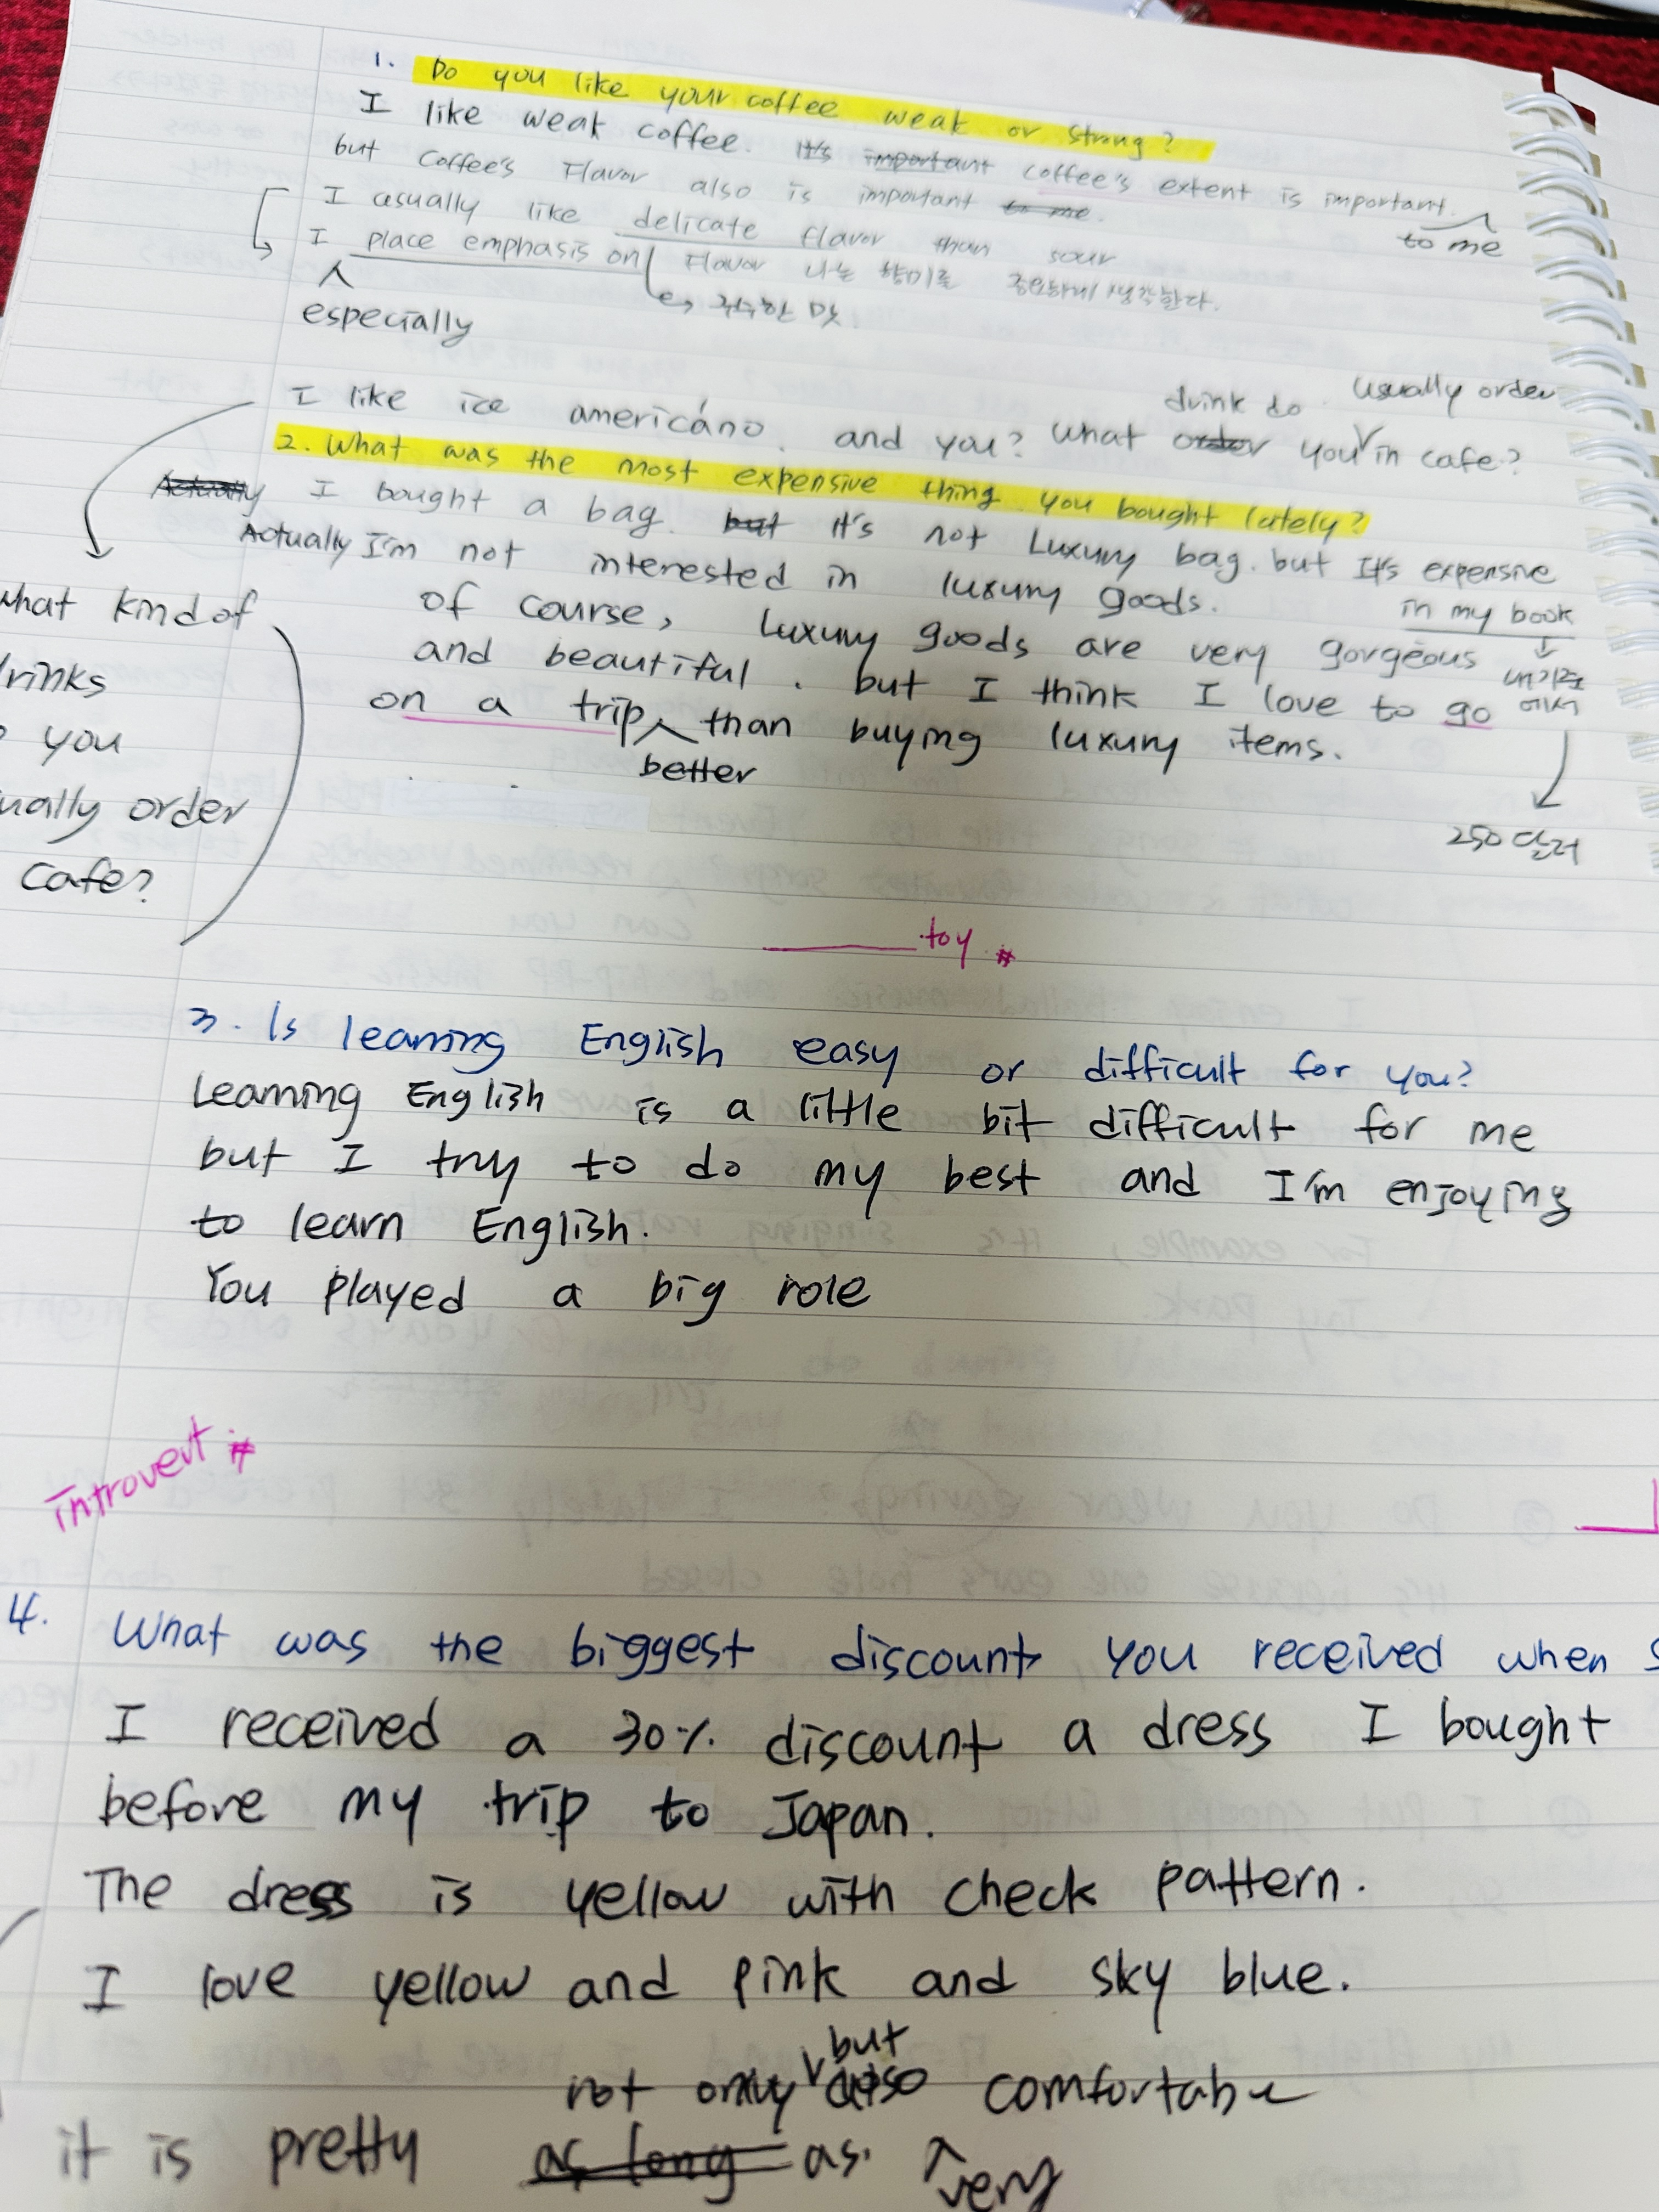 1. Do you like your coffee weak or strong?
I like weak coffee. It's important coffee's extent is important
to me
but coffee's Flavor also is important to me.
I usually like delicate flavor than sour
I place emphasis on Flavor 나는 향미를 중요하게 생각한다.
especially
구수한 맛
drink do usually order
I like ice americano. and you? What order you in cafe?
2. What was the most expensive thing you bought lately?
Actually I bought a bag. but It's not Luxury bag. but It's expensive
in my book
내기준
에서
250달러
Actually I'm not interested in luxury goods.
of course, Luxury goods are very gorgeous
and beautiful. but I think I love to go
on a trip than buying luxury items.
better
what kind of
drinks
you
ually order
Cafe?
toy #
3. Is learning English easy or difficult for you?
Learning English is a little bit difficult for me
but I try to do my best and I'm enjoying
to learn English.
You played a big role
introvert #
4. What was the biggest discount you received when
I received a 30% discount a dress I bought
before my trip to Japan.
The dress is yellow with check pattern.
I love yellow and pink and sky blue.
but
not only also comfortable
it is pretty as long as. very